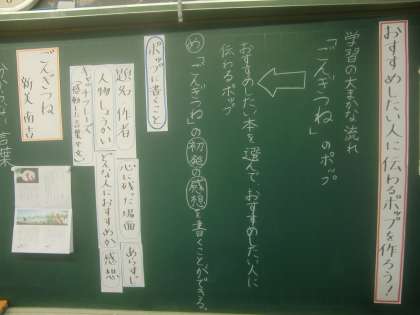 おすすめしたい人に伝わるポップを作ろう!
学習の大まかな流れ
「ごんぎつね」のポップ
おすすめしたい本を選んで、おすすめしたい人に
伝わるポップ
め「ごんぎつね」の初発の感想を書くことができる。
ポップに書くこと
題名・作者
心に残った場面
あらすじ
人物しょうかい
どんな人におすすめか
感想
キャッチフレーズ
ごんぎつね
新美 南吉
言葉